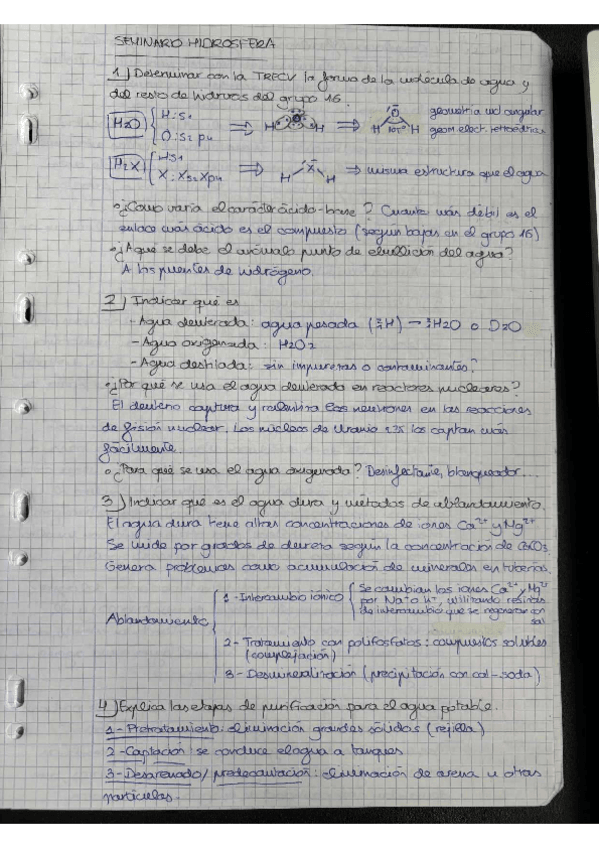 SEMINARIO HIDROSFERA
1) Determinar con la TRECV la forma de la molécula de agua y
del resto de hidruros del grupo 16.
H2O { H: s1 O: s2 p4 ⇒ H O H ⇒ H O H 105° geometría mol angular
geom elect. tetraédrica
H2X { H s1 X: Xs2 Xp4 ⇒ H X H ⇒ misma estructura que el agua
• ¿Cómo varía el carácter ácido-base? Cuanto más débil es el
enlace más ácido es el compuesto (según bajas en el grupo 16)
• ¿A qué se debe el anómalo punto de ebullición del agua?
A los puentes de hidrógeno.
2) Indicar qué es
- Agua deuterada: agua pesada (²₁H) → ²₁H2O o D2O
- Agua oxigenada: H2O2
- Agua destilada: sin impurezas o contaminantes
• ¿Por qué se usa el agua deuterada en reactores nucleares?
El deuterio captura y ralentiza los neutrones en las reacciones
de fisión nuclear. Los núcleos de Uranio 235 los captan más
fácilmente.
• ¿Para qué se usa el agua oxigenada? Desinfectante, blanqueador...
3) Indicar qué es el agua dura y métodos de ablandamiento.
El agua dura tiene altas concentraciones de iones Ca2+ y Mg2+
Se mide por grados de dureza según la concentración de CaCO3
Genera problemas como acumulación de minerales en tuberías.
Ablandamiento
1 - Intercambio iónico { Se cambian los iones Ca2+ y Mg2+
por Na+ o H+, utilizando resinas
de intercambio que se regeneran con
sal
2 - Tratamiento con polifosfatos: compuestos solubles
(complejación)
3 - Desmineralización (precipitación con cal-soda)
4) Explica las etapas de purificación para el agua potable.
1 - Pretratamiento: eliminación grandes sólidos (rejilla)
2 - Captación: se conduce el agua a tanques
3 - Desarenado/predecantación: eliminación de arena u otras
partículas.